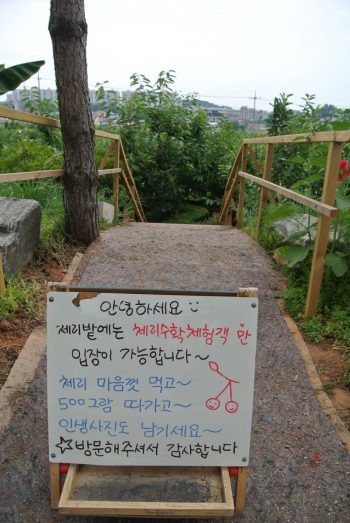 안녕하세요
체리밭에는 체리수확체험객 만
입장이 가능합니다~
체리 마음껏 먹고~
500그람 따가고~
인생사진도 남기세요~
☆방문해주셔서 감사합니다